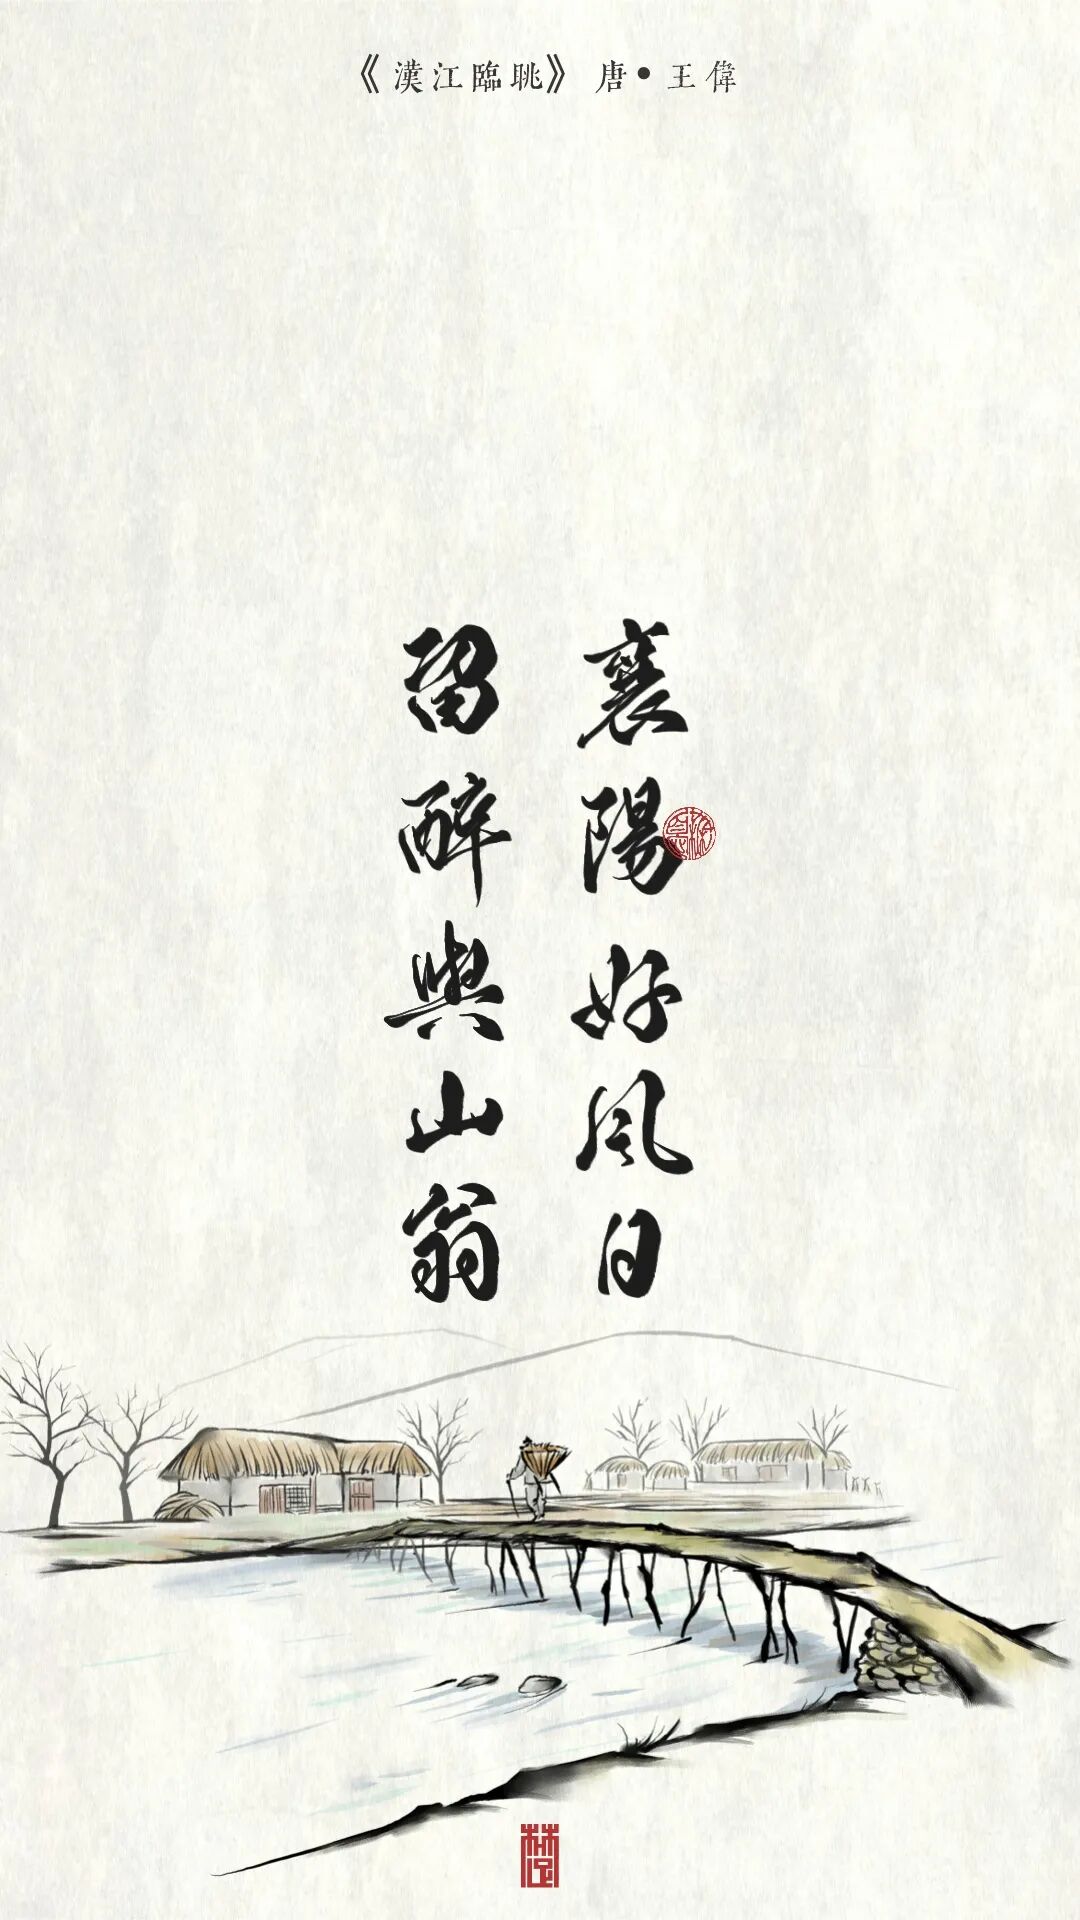 《漢江臨眺》 唐•王偉
襄陽好風日
留醉與山翁